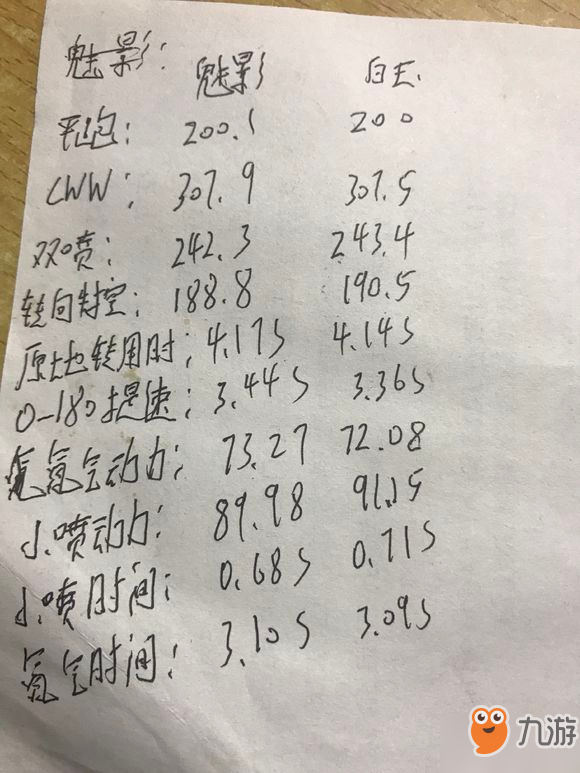 魅影: 魅影 白王.
平跑: 200.1 200
CWW: 307.9 307.5
双喷: 242.3 243.4
转向时空: 188.8 190.5
原地转用时: 4.17S 4.14S
0-180提速: 3.44S 3.36S
氮氮气动力: 73.27 72.08
小喷动力: 89.98 91.15
小喷时间: 0.68S 0.71S
氮气时间: 3.10S 3.09S
九游